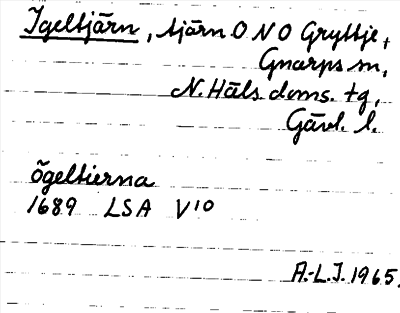 Igeltjärn, tjärn O N O Gryttje,
Gnarps sn,
N. Häls. doms. tg,
Gävl. l.
õgeltierna
1689 LSA V¹⁰
A.-L.J. 1965.